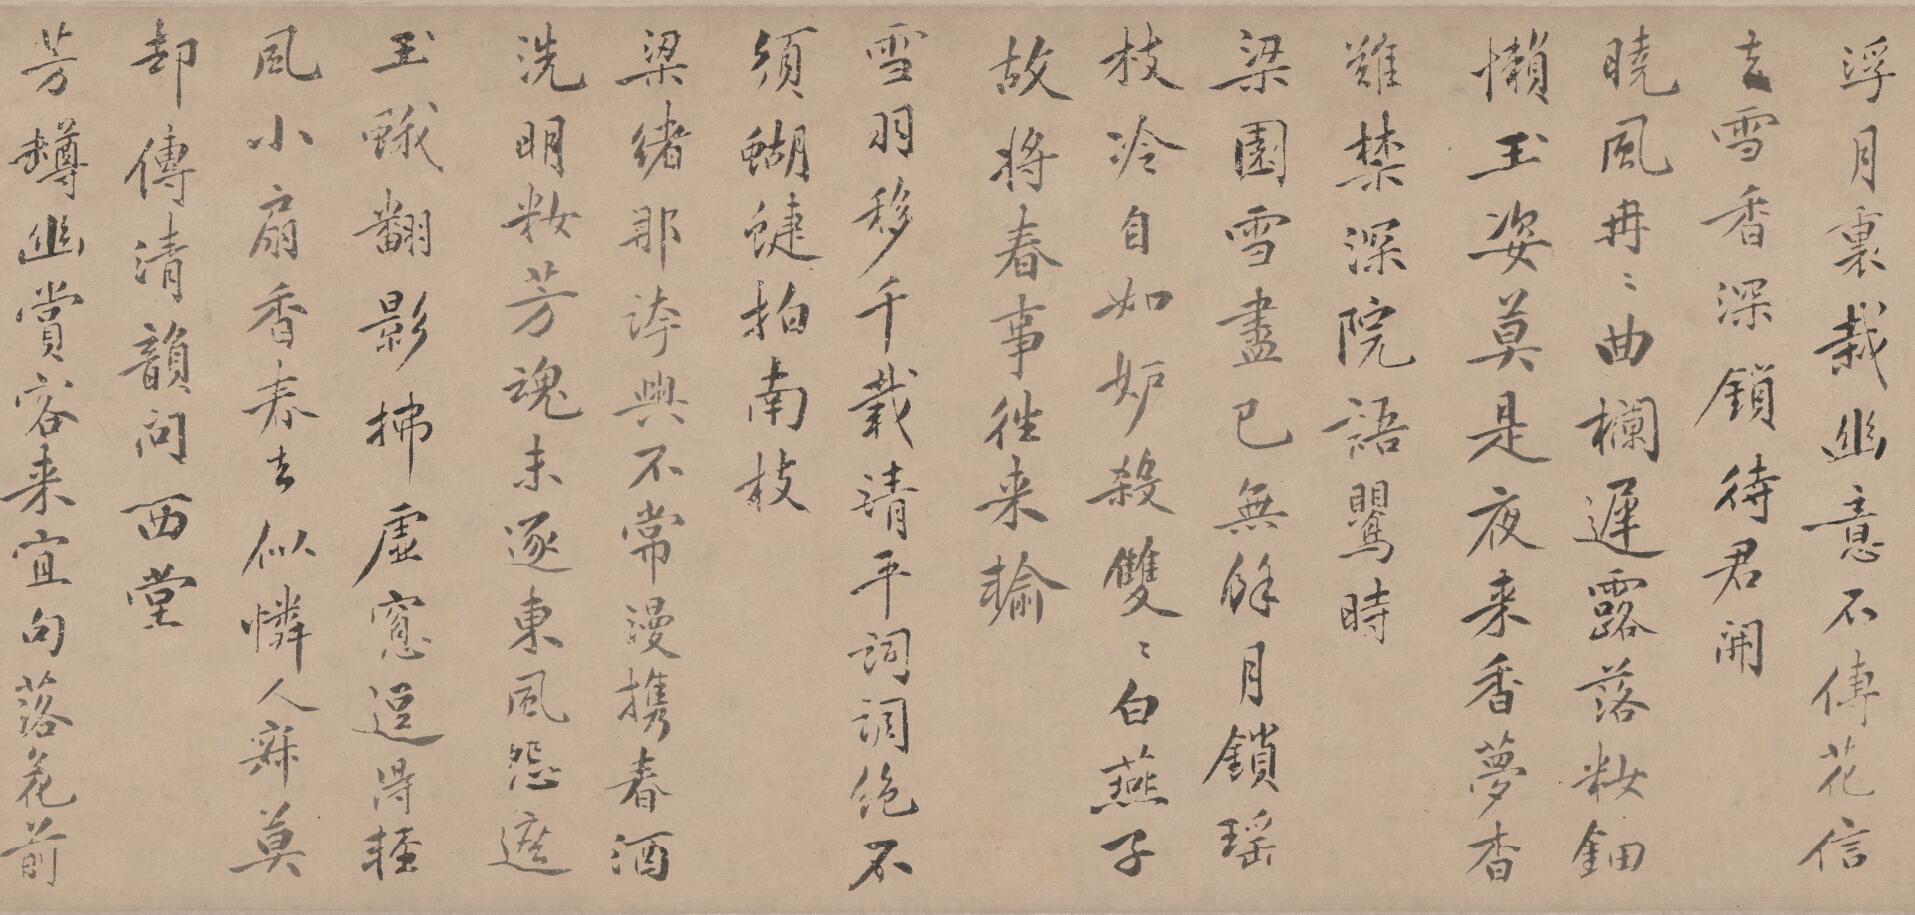 浮月裏栽幽意不傳花信
去雪香深鎖待君開
曉風冉〻曲欄遲露落妝鈿
懶玉姿莫是夜来香夢杳
難禁深院語鸎時
梁園雪盡已無餘月鎖瑶
枝冷自如妒殺雙〻白燕子
故將春事往来輸
雪羽移千載清平詞調絶不
須蝴蜨拍南枝
梁緒那誇興不常漫携春酒
洗明妝芳魂未逐東風怨遮
玉蛾翻影拂虚窓逗得輕
風小扇香春去似憐人寐莫
却傳清韻問西堂
芳罇幽賞客来宜句落花前